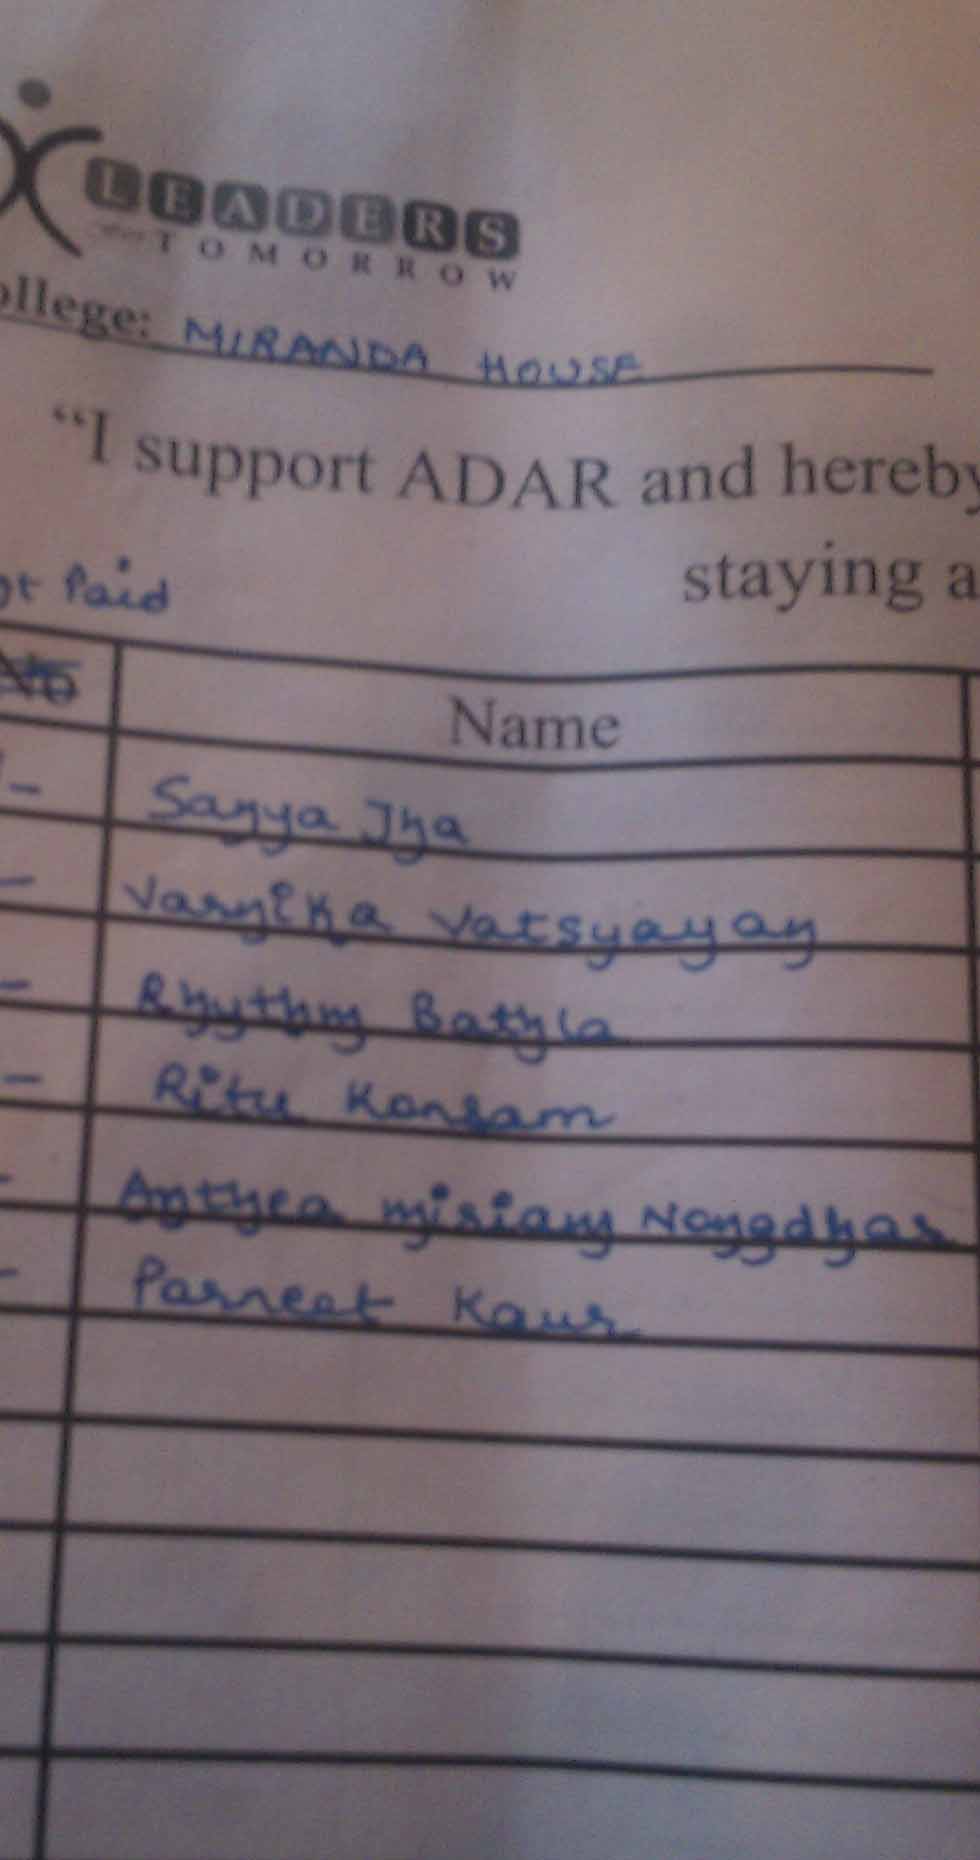 LEADERS
TOMORROW
ollege: MIRANDA HOUSE
“I support ADAR and hereby
staying a
Paid
Name
Sanya Jha
Varnika Vatsyayan
Rhythm Bathla
Ritu Konsam
Anthea miriam Nongdhar
Parneet Kaur